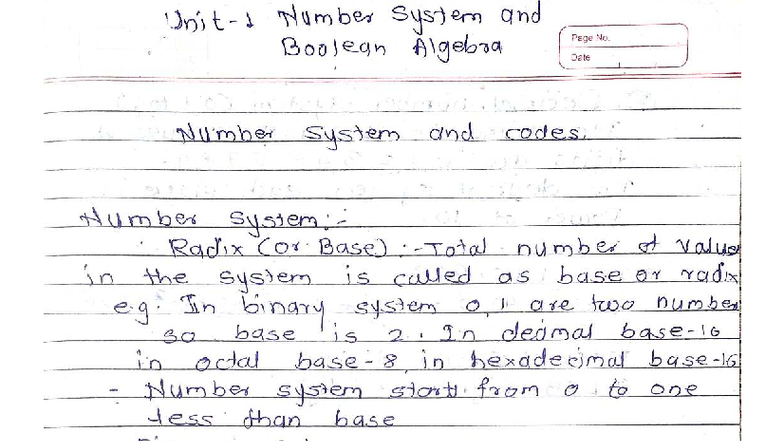 Unit-1 Number System and
Boolean Algebra
Page No.
Date
Number System and codes.
Number System:-
Radix (or Base) :- Total number of value
in the system is called as base or radix
e.g. In binary system 0,1 are two number
so base is 2. In decimal base-10
in octal base-8, in hexadecimal base-16
- Number system start from 0 to one
less than base